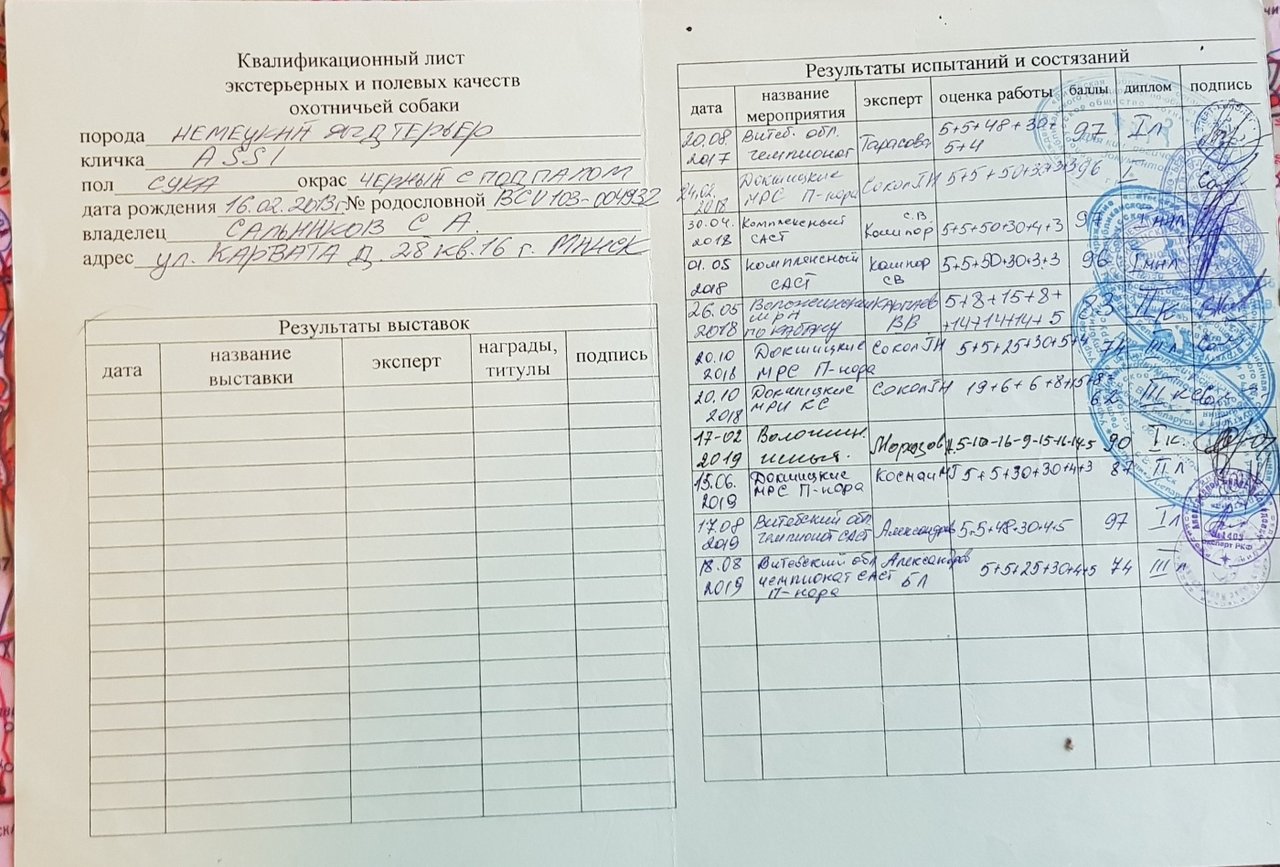 Квалификационный лист
экстерьерных и полевых качеств
охотничьей собаки
порода НЕМЕЦКИЙ ЯГДТЕРЬЕР
кличка ASSI
пол СУКА окрас ЧЕРНЫЙ С ПОДПАЛОМ
дата рождения 16.02.2013г. № родословной BCU 103-004932
владелец САЛЬНИКОВ С А.
адрес ул. КАРВАТА Д. 28 кв. 16 г. МИНСК
Результаты выставок
дата название выставки эксперт награды, титулы подпись
Результаты испытаний и состязаний
дата название мероприятия эксперт оценка работы баллы диплом подпись
20.08 2017 Витеб. обл. чемпионат Тарасова 5+5+48+30+ 5+4 97 I л
24.02 2018 Докшицкие МРС П-нора Сокол ГН 5+5+50+30+3+3 96 I
30.04. 2018 Комплексный САСТ С.В. 5+5+50+30+4+3 97 I
01.05 2018 комплексный САСТ СВ 5+5+50+30+3+3 96 I
26.05 2018 по кабану ВВ 5+8+15+8+ +14+14+14+5 83 II к
20.10 2018 Докшицкие МРС П-нора Сокол ГН 5+5+25+30+5+4 74 III л
20.10 2018 Докшицкие МРИ КС Сокол ГН 19+6+6+8+15+8 62 III к
17-02 2019 Воложин. испыт. Морозов 90 I к.
15.06. 2019 Докшицкие МРС П-нора 5+5+30+30+4+3 87 II л
17.08 2019 Витебский обл. чемпионат САСТ Александров 5+5+48+30+4+5 97 I л
18.08 2019 Витебский обл чемпионат САСТ П-нора Александров БЛ 5+5+25+30+4+5 74 III л